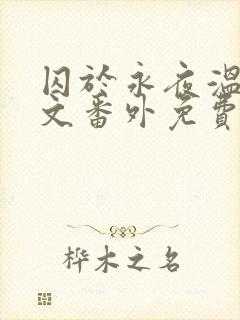 囚於永夜温
文番外免費
桦木之名